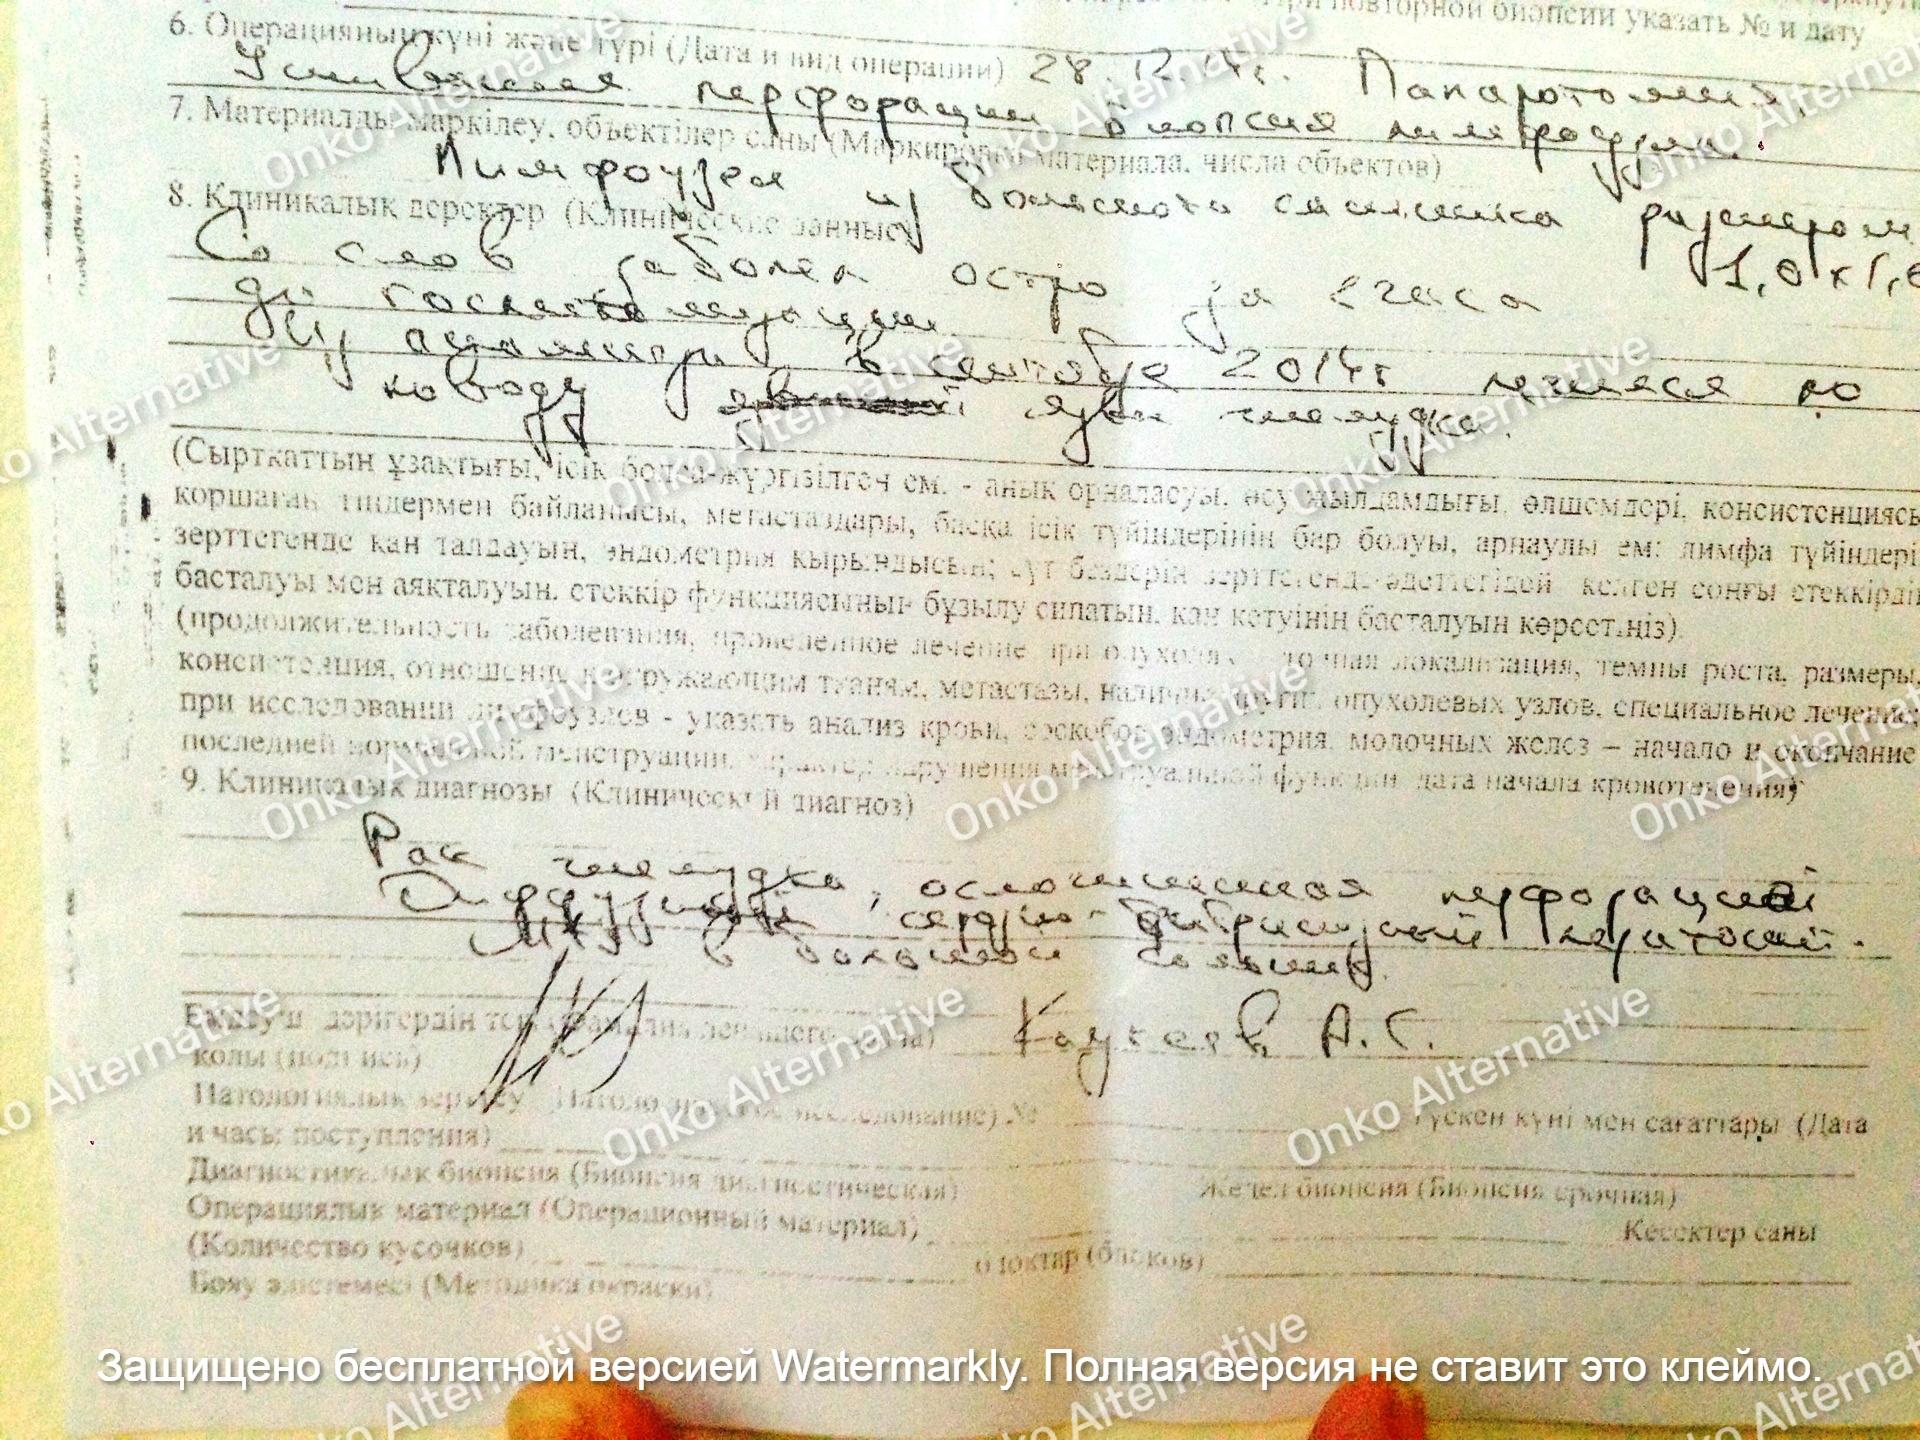 При повторной биопсии указать № и дату
6. Операцияның күні және түрі (Дата и вид операции) 28.12.14г. Лапаротомия,
Ушивание перфорации, биопсия лимфоузла.
7. Материалды маркілеу, объектілер саны (Маркировка материала, числа объектов)
Лимфоузел из большого сальника размером
1,0х1,0
8. Клиникалық деректер (Клинические данные)
Со слов заболел остро за часа
до госпитализации.
Из анамнеза в сентябре 2014г лечился по
поводу язвы желудка.
(Сырткаттын ұзақтығы, ісік болса-жүргізілген ем. - анық орналасуы, өсу жылдамдығы, өлшемдері, консистенциясы
қоршаған тіндермен байланысы, метастаздары, басқа ісік түйіндерінің бар болуы, арнаулы ем: лимфа түйіндері
зерттегенде қан талдауын, эндометрия қырындысын; сүт бездерін зерттегенде әдеттегідей келген соңғы етеккірдің
басталуы мен аяқталуын, етеккір функциясының бұзылу сипатын, қан кетуінің басталуын көрсетіңіз)
(продолжительность заболевания, проведенное лечение при опухолях - точная локализация, темпы роста, размеры,
консистенция, отношение к окружающим тканям, метастазы, наличие других опухолевых узлов, специальное лечение;
при исследовании лимфоузлов - указать анализ крови, соскобов эндометрия, молочных желез – начало и окончание
последней нормальной менструации, характер нарушения менструальной функции, дата начала кровотечения)
9. Клиникалық диагнозы (Клинический диагноз)
Рак желудка, осложненная перфорацией
Диффузный серозно-фибринозный перитонит.
Mts в большой сальник.
Емдеуші дәрігердің тегі (Фамилия лечащего врача)
қолы (подпись)
А.С.
Патологиялық зерттеу (Патологическое исследование) № Түскен күні мен сағаттары (Дата
и часы поступления)
Диагностикалық биопсия (Биопсия диагностическая) Жедел биопсия (Биопсия срочная)
Операциялық материал (Операционный материал) Кесектер саны
(Количество кусочков) блоктар (блоков)
Бояу әдістемесі (Методика окраски)
Onko Alternative
Защищено бесплатной версией Watermarkly. Полная версия не ставит это клеймо.